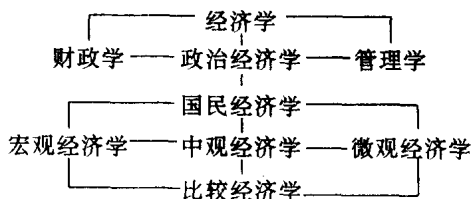 经济学
财政学 政治经济学 管理学
国民经济学
宏观经济学 中观经济学 微观经济学
比较经济学